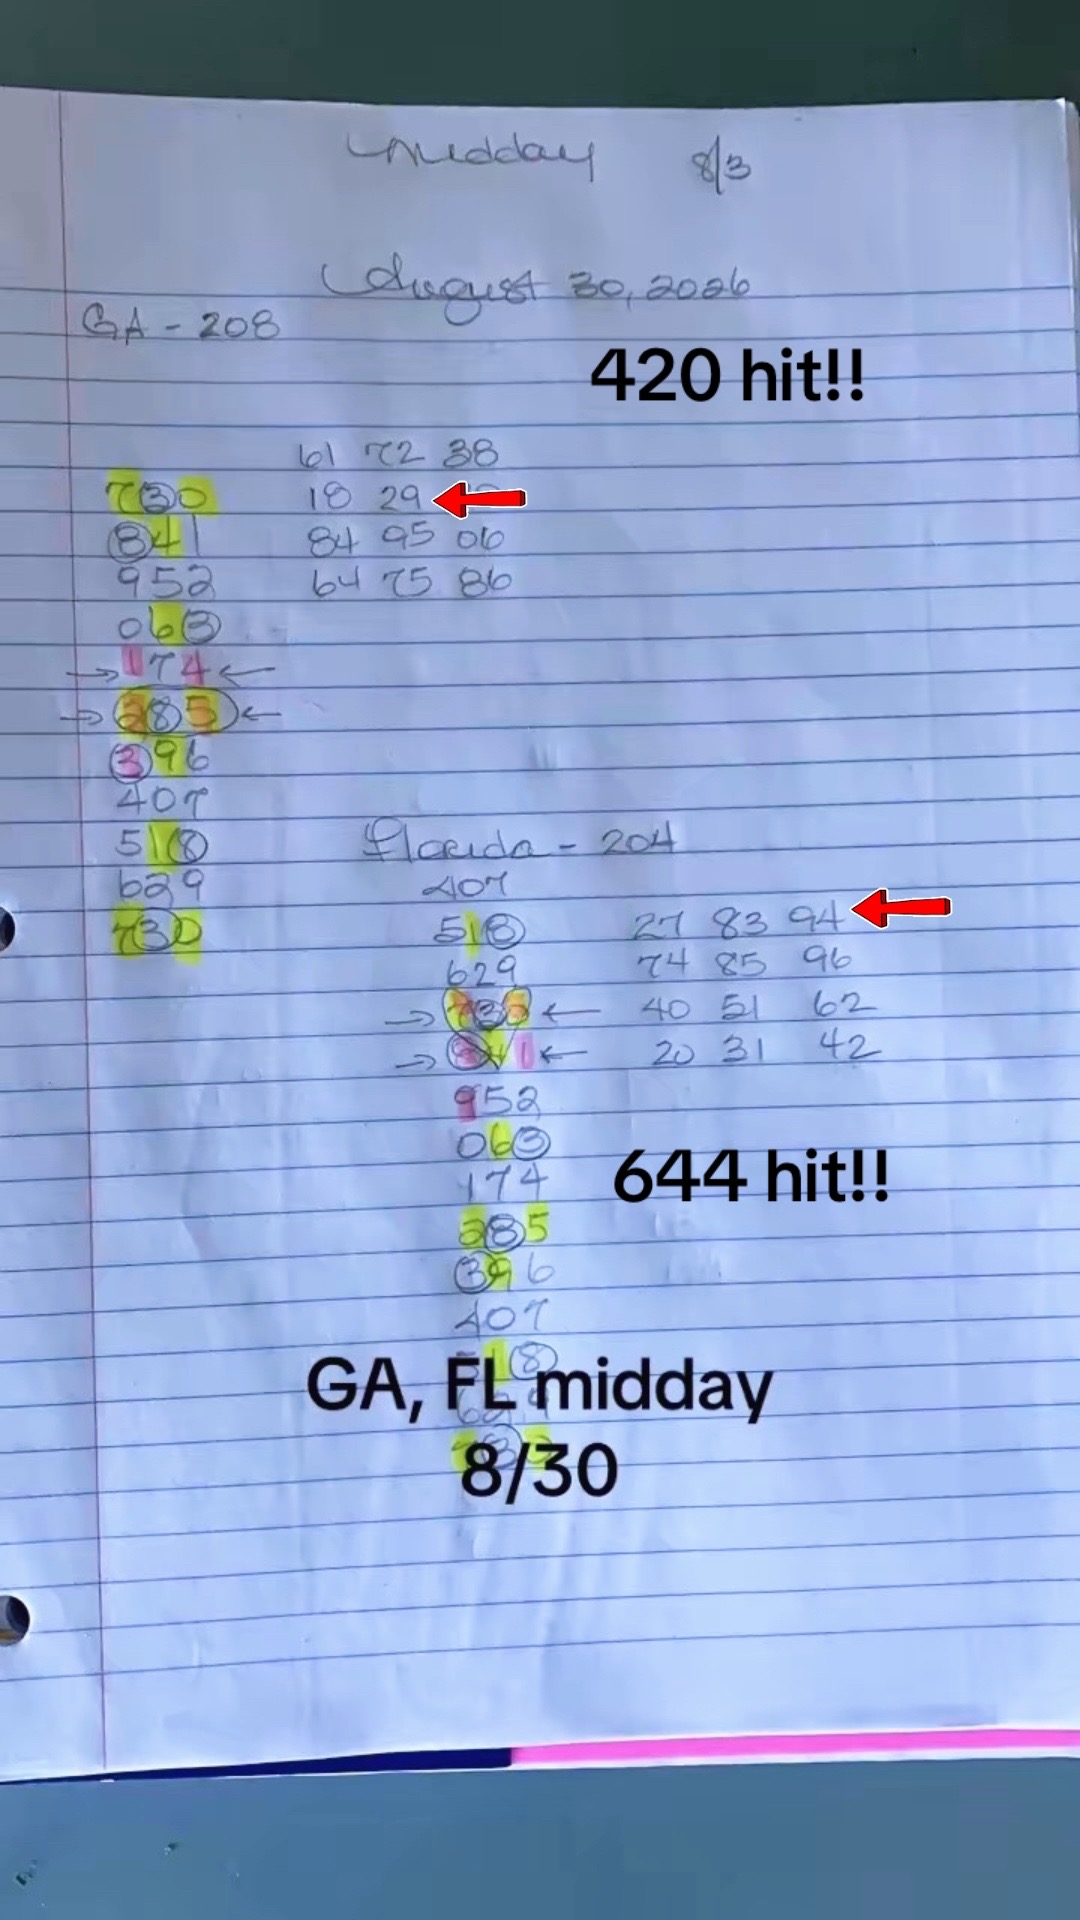 Midday 8/3
August 30, 2026
GA - 208
420 hit!!
61 72 38
730 18 29
841 84 95 06
952 64 75 86
063
→ 174 ←
→ 285 ←
396
407
518 Florida - 204
629 407
730 518 27 83 94
629 74 85 96
→ 730 ← 40 51 62
→ 841 ← 20 31 42
952
063
174
644 hit!!
285
396
407
518
GA, FL midday
629
8/30